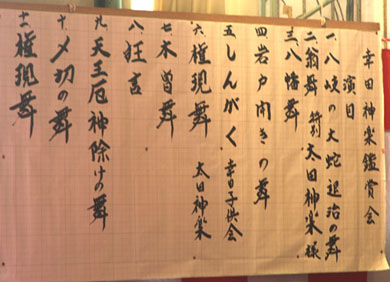 幸田神楽鑑賞会
演目
一、八岐の大蛇退治の舞
二、翁舞 特別 太田神楽様
三、八幡舞
四、岩戸開きの舞
五、しんがく 幸田子供会
六、権現舞 太田神楽
七、木曽舞
八、狂言
九、天王厄神除けの舞
十、〆切の舞
十一、権現舞